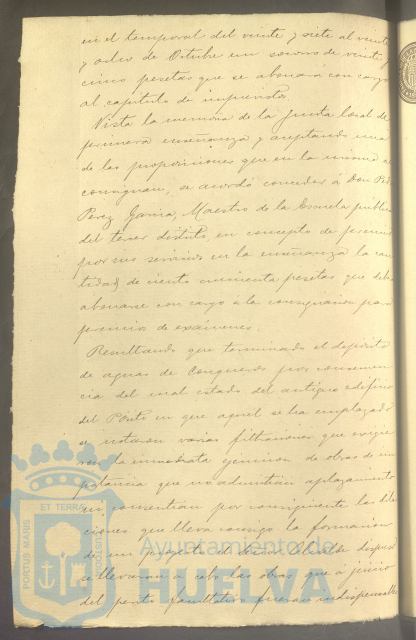 en el temporal del veinte y siete al veinte
y ocho de Octubre un socorro de veinte y
cinco pesetas que se abonará con cargo
al capítulo de imprevistos.
Vista la memoria de la Junta local de
primera enseñanza y aceptando una
de las proposiciones que en la misma se
consignan, se acordó conceder á Don
Perez Garcia, Maestro de la Escuela publica
del tercer distrito, en concepto de premio
por sus servicios en la enseñanza la can
tidad de ciento cincuenta pesetas que debe
abonarse con cargo á la consignacion para
premios de exámenes.
Resultando que terminado el depósito
de aguas de Conqueros por consecuen
cia del mal estado del antiguo edificio
del Pósito en que aquel se ha emplazado
se notaron varias filtraciones que exigie
ron la inmediata ejecucion de obras de im
portancia que no admitian aplazamiento
ni consentian por consiguiente las dila
ciones que lleva consigo la formacion
de un proyecto, el Señor Alcalde dispuso
se llevaran á cabo las obras que á juicio
del perito facultativo fueran indispensables
PORTUS MARIS
ET TERRÆ
CUSTODIA
Ayuntamiento de
HUELVA